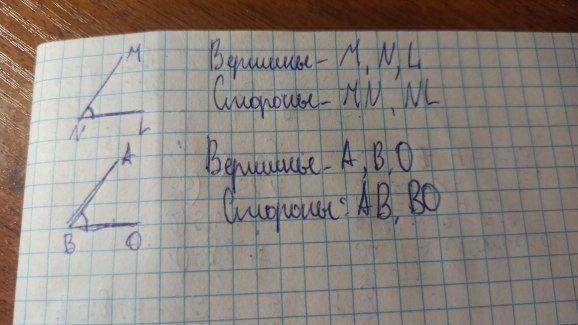 M
Вершины - M, N, L
Стороны - MN, NL
N L
A
Вершины - A, B, O
Стороны: AB, BO
B O